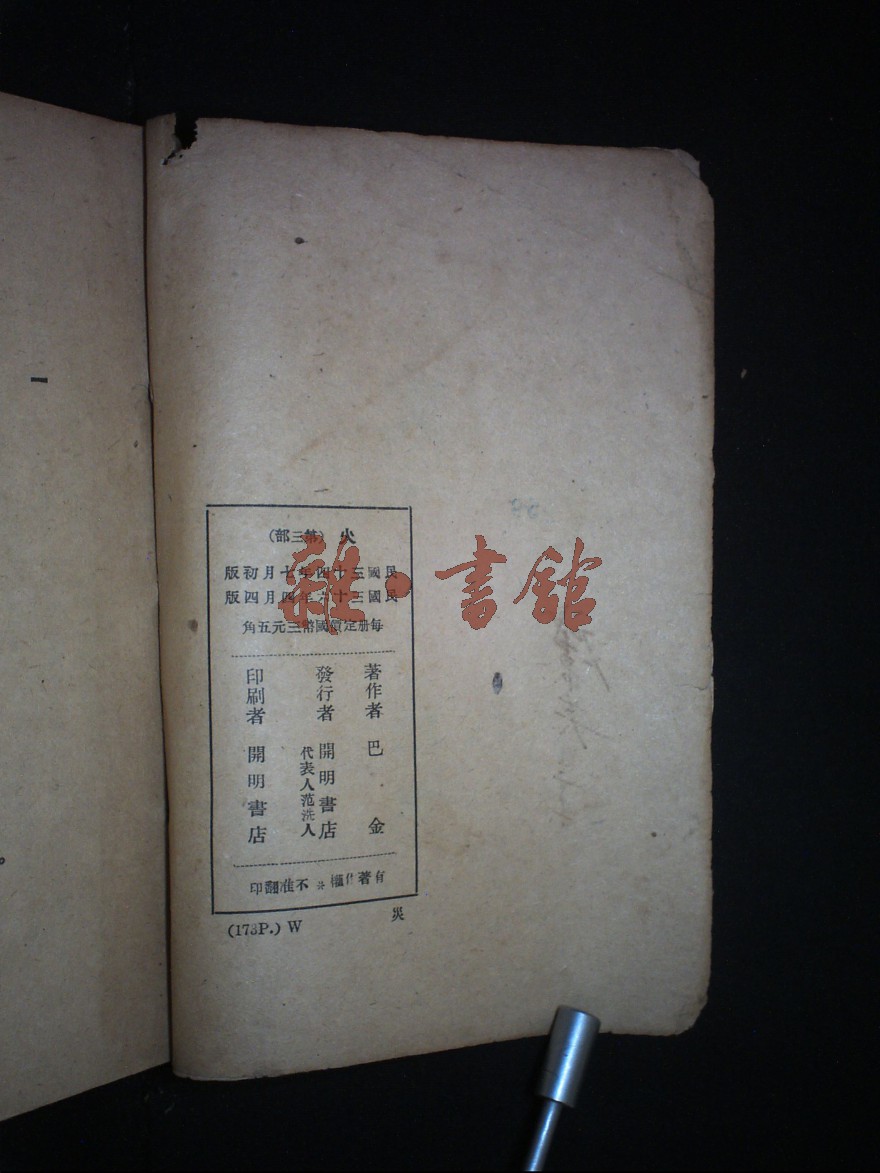 火 (第三部)
民國三十四年七月初版
民國三十六年四月四版
每册定價國幣三元五角
著作者 巴金
發行者 開明書店
代表人范洗人
印刷者 開明書店
有著作權 不准翻印
(173P.) W
雜·書館